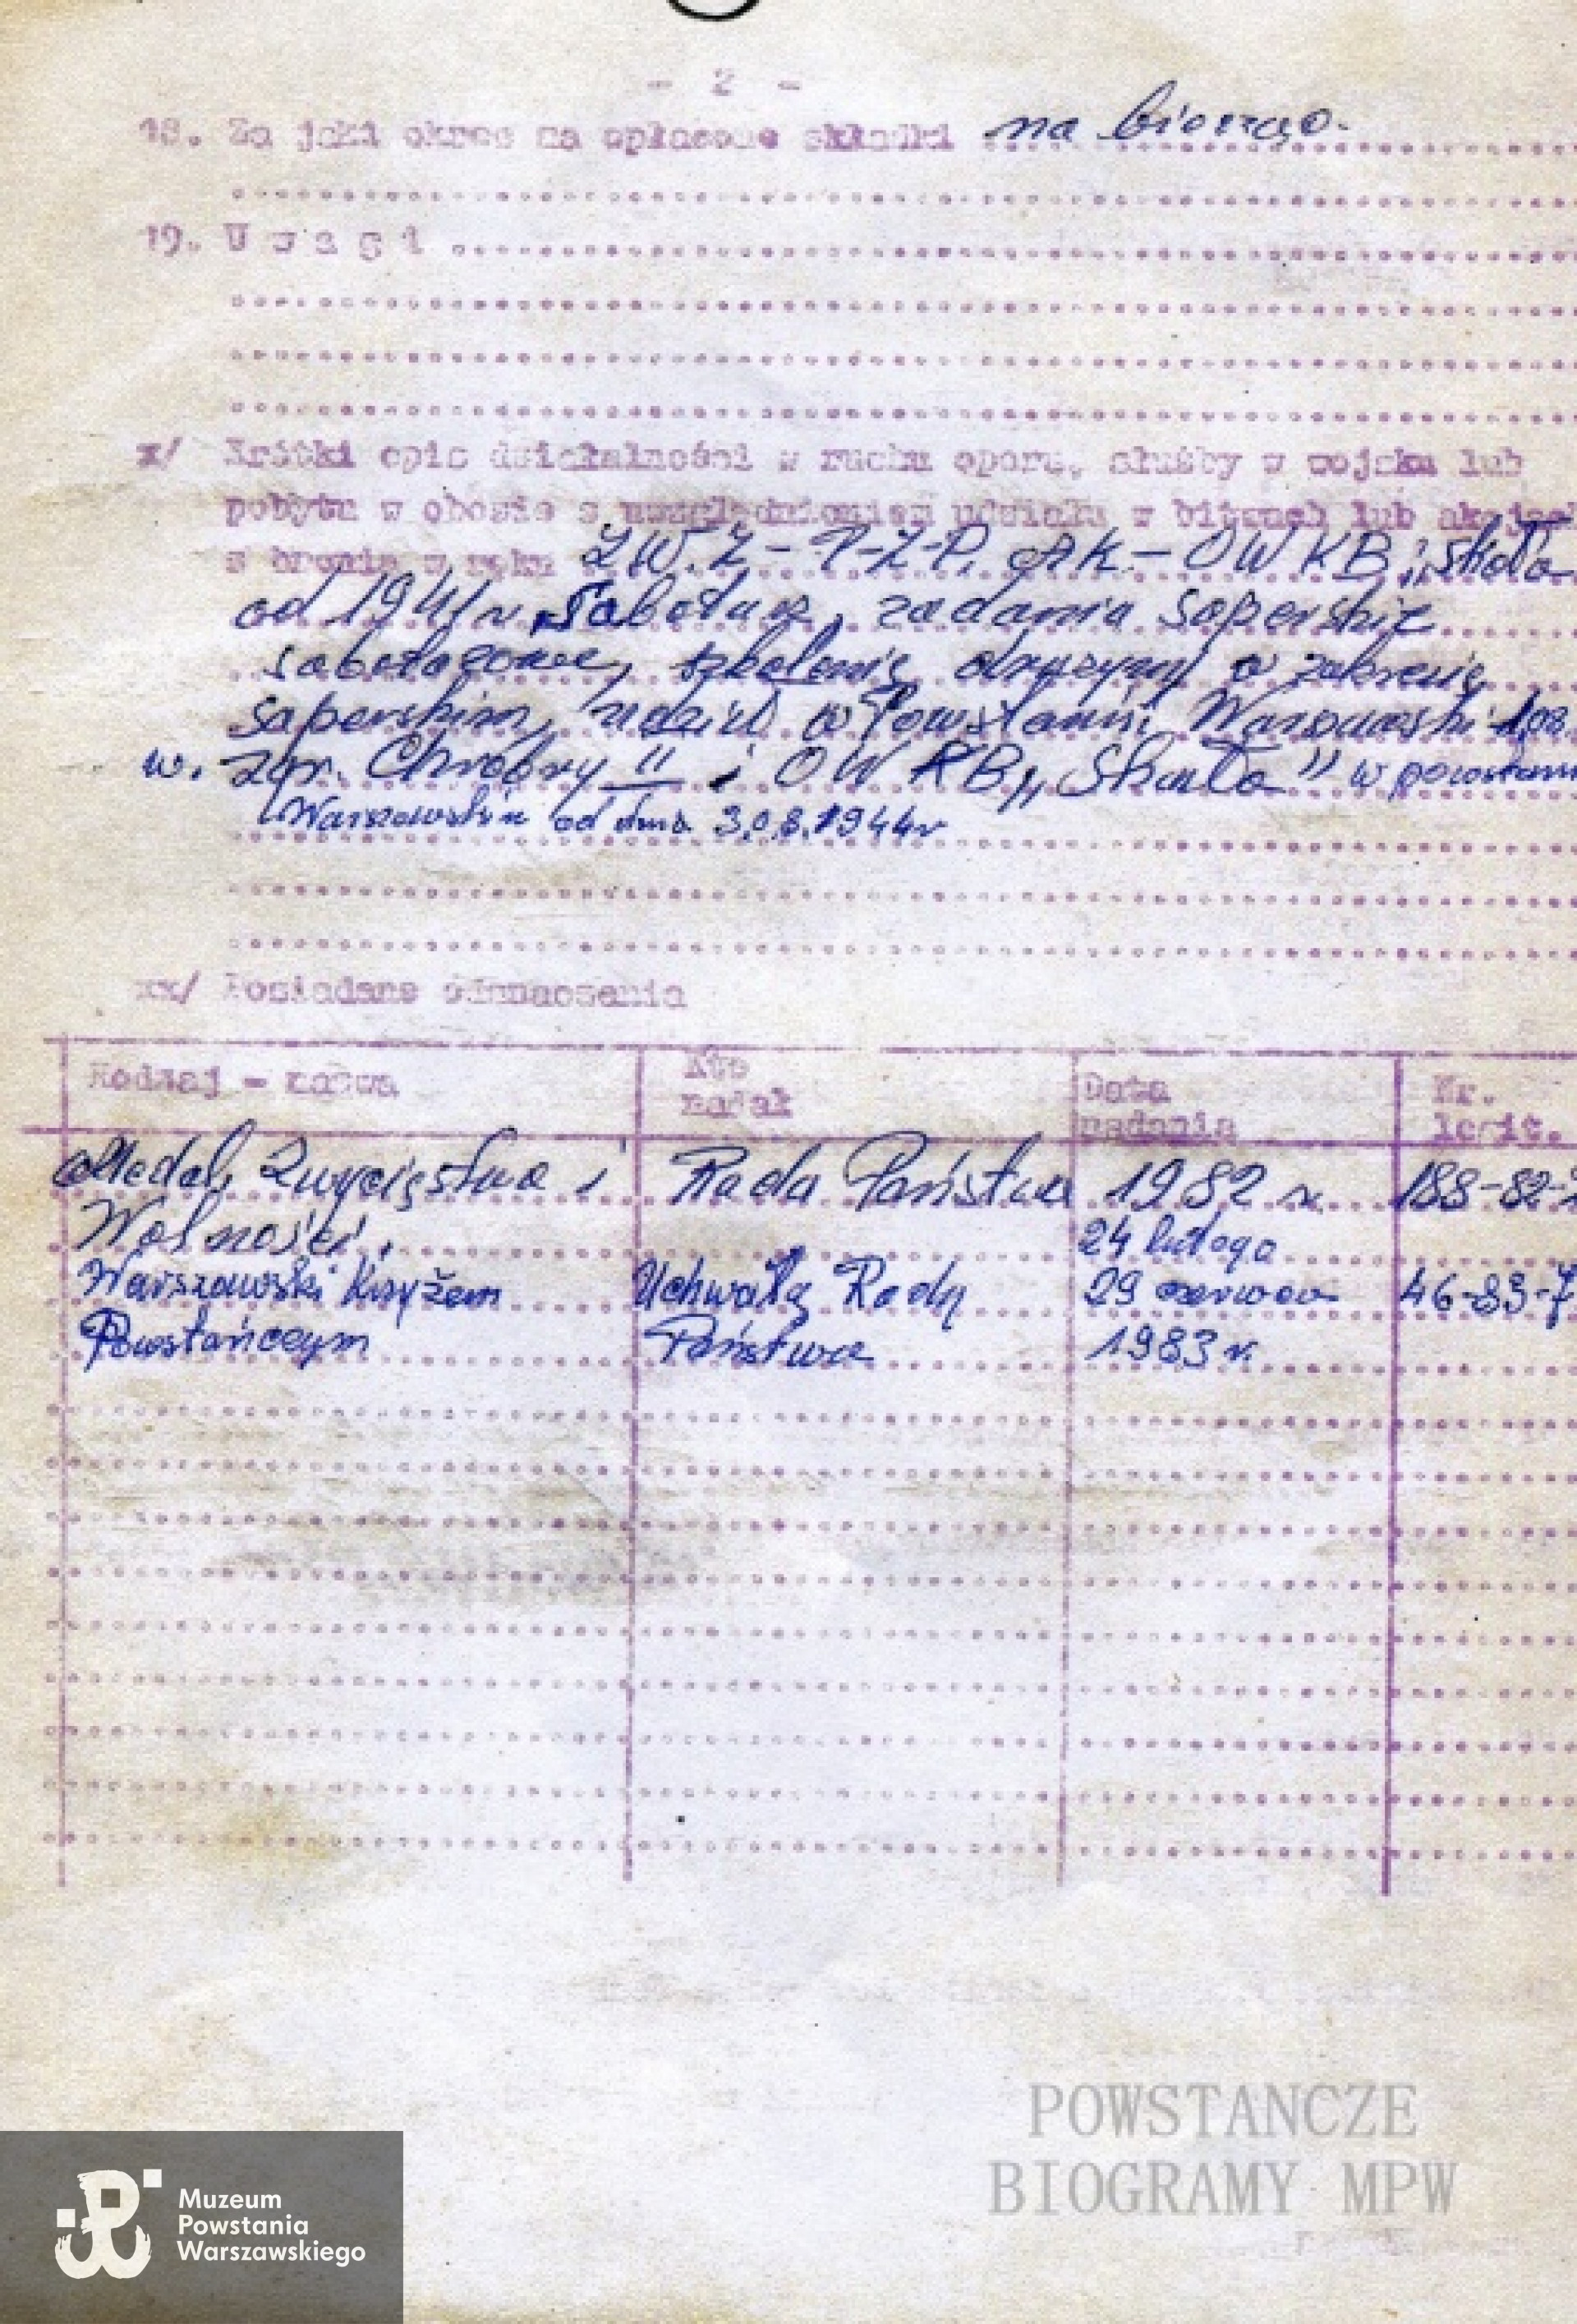 - 2 -
18. Za jaki okres ma opłacone składki na bierząco.
19. U w a g i
x/ Krótki opis działalności w ruchu oporu, służby w wojsku lub
pobytu w obozie z uwzględnieniem udziału w bitwach lub akcjach
z bronią w ręku Z.W.Z - P-Z-P. AK - OW KB "Skała
od 1941 r. Sabotaż, zadania saperskie
sabotażowe, szkolenie drużyny w zakresie
saperskim, udział w Powstaniu
w. zgr. Chrobry II i OW KB "Skała" w powstaniu
Warszawskim od dnia 3.08.1944r
xx/ Posiadane odznaczenia
Rodzaj - nazwa Kto nadał Data nadania Nr. legit.
Medal, Zwycięstwa i Rada Państwa 1982 r. 188-82-
Wolności, 24 lutego
Warszawski Krzyżem Uchwałą Rady 29 czerwca 46-83-7
Powstańczym Państwa 1983 r.
POWSTANCZE
BIOGRAMY MPW
Muzeum
Powstania
Warszawskiego